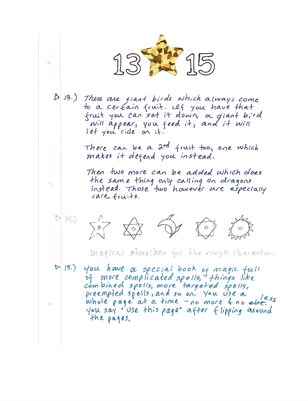 13 15
▷ 13.) There are giant birds which always come
to a certain fruit. If you have that
fruit you can set it down, a giant bird
will appear, you feed it, and it will
let you ride on it.
There can be a 2nd fruit too, one which
makes it defend you instead.
Then two more can be added which does
the same thing only calling on dragons
instead. Those two however are especially
rare fruits.
▷ 14.)
Magical shuriken for the ninja character.
▷ 15.) You have a special book of magic full
of more complicated spells, things like
combined spells, more targeted spells,
preempted spells, and so on. You use a
whole page at a time - no more & no less
you say "Use this page" after flipping around
the pages.